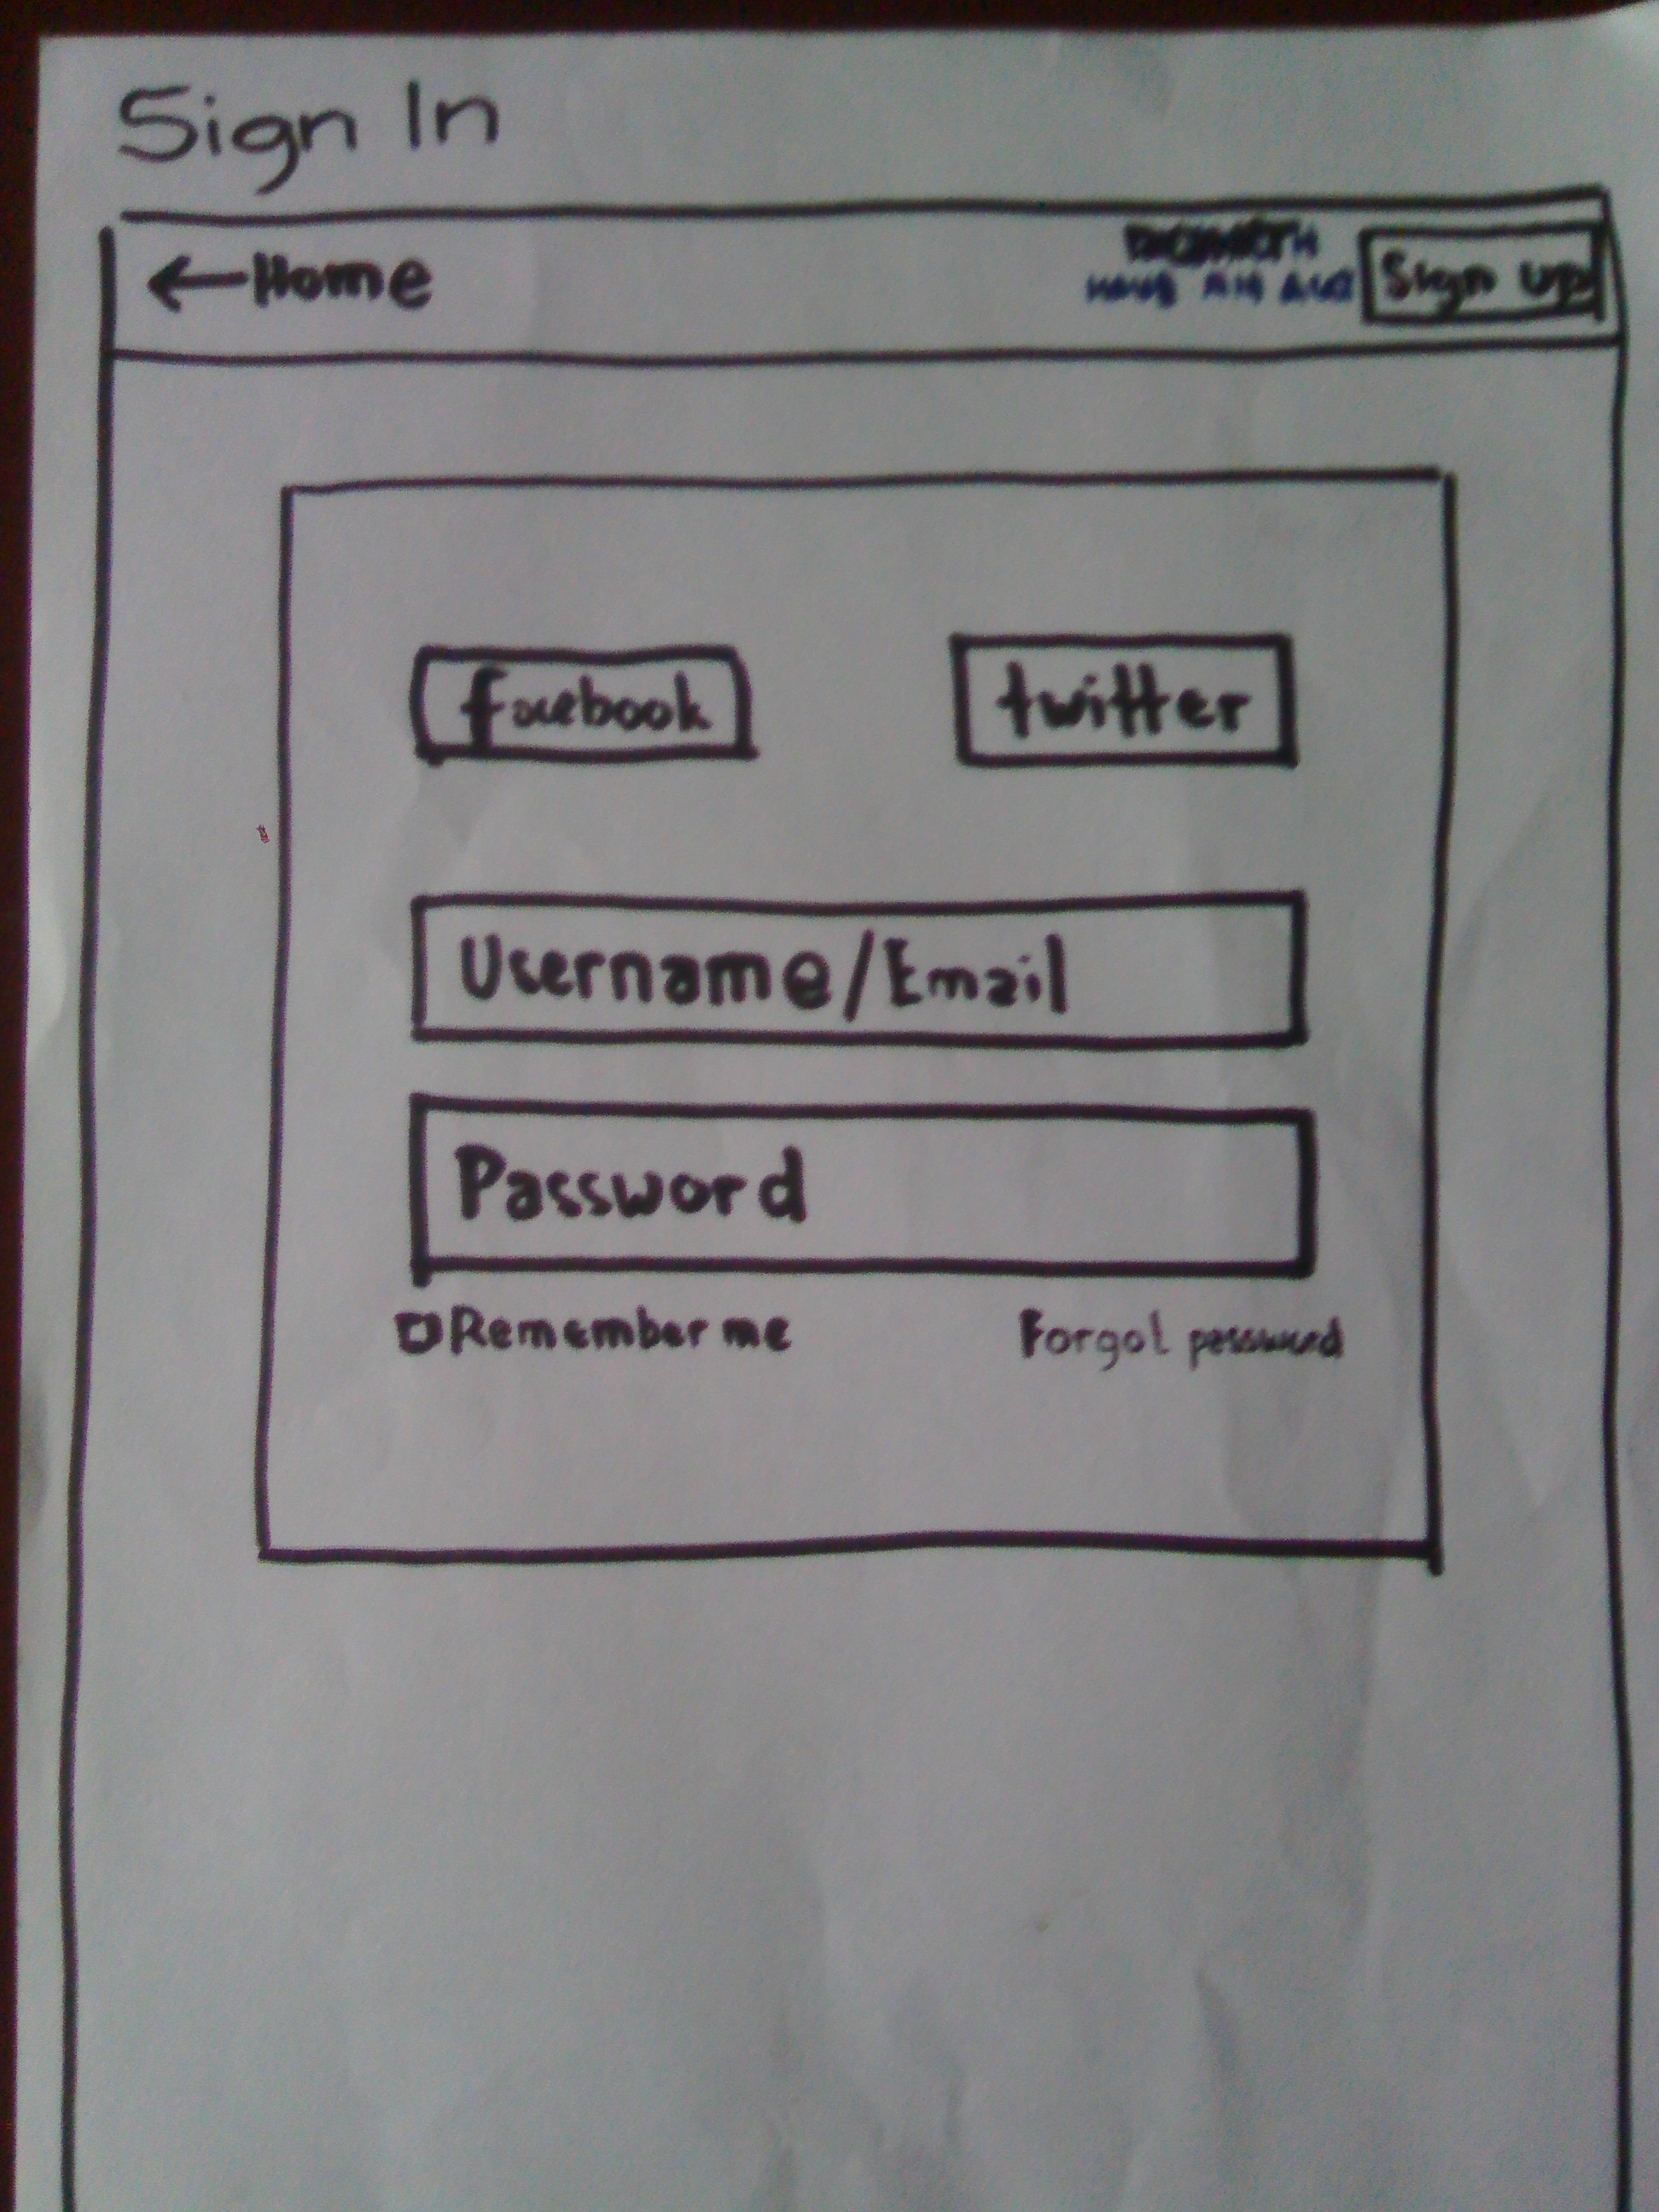 Sign In
←Home
Sign up
facebook
twitter
Username/Email
Password
Remember me
Forgot password